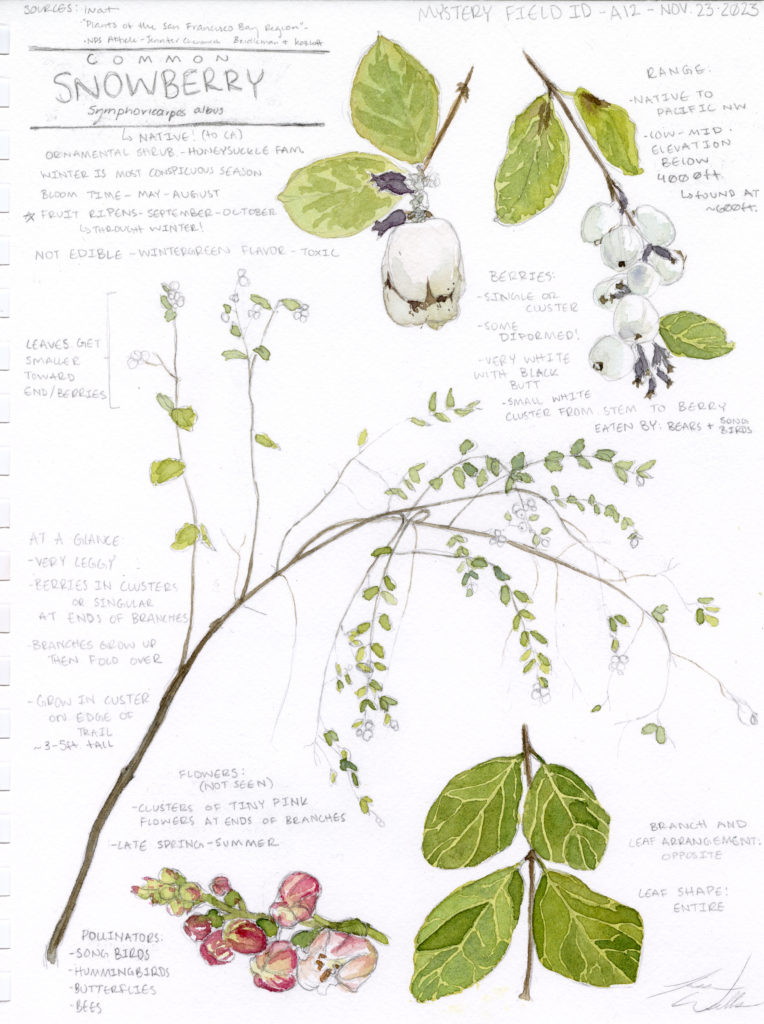 SOURCES: iNat
MYSTERY FIELD ID - A12 - NOV. 23. 2023
"Plants of the San Francisco Bay Region" -
COMMON
SNOWBERRY
Symphoricarpos albus
↳ NATIVE! (TO CA)
ORNAMENTAL SHRUB - HONEYSUCKLE FAM.
WINTER IS MOST CONSPICUOUS SEASON
BLOOM TIME - MAY - AUGUST
☆ FRUIT RIPENS - SEPTEMBER - OCTOBER
↳ THROUGH WINTER!
NOT EDIBLE - WINTERGREEN FLAVOR - TOXIC
RANGE:
- NATIVE TO
PACIFIC NW
- LOW - MID.
ELEVATION
BELOW
4000ft.
↳ FOUND AT
~600ft.
BERRIES:
- SINGLE OR
CLUSTER
- SOME
DIFORMED!
- VERY WHITE
WITH BLACK
BUTT
- SMALL WHITE
CLUSTER FROM STEM TO BERRY
EATEN BY: BEARS + SONG
BIRDS
LEAVES GET
SMALLER
TOWARD
END/BERRIES
AT A GLANCE
- VERY LEGGY
- BERRIES IN CLUSTERS
OR SINGULAR
AT ENDS OF BRANCHES
- BRANCHES GROW UP
THEN FOLD OVER
- GROW IN CUSTER
ON EDGE OF
TRAIL
~ 3-5ft. tall
FLOWERS:
(NOT SEEN)
- CLUSTERS OF TINY PINK
FLOWERS AT ENDS OF BRANCHES
- LATE SPRING - SUMMER
POLLINATORS:
- SONG BIRDS
- HUMMINGBIRDS
- BUTTERFLIES
- BEES
BRANCH AND
LEAF ARRANGEMENT:
OPPOSITE
LEAF SHAPE:
ENTIRE